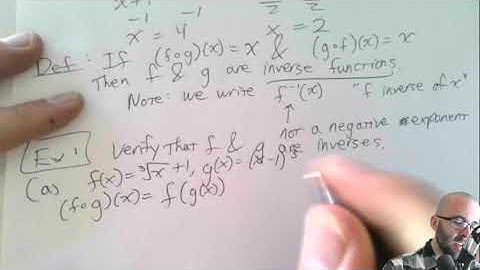 x+1
-1 -1
x = 4
2 2
x = 2
Def: If (f∘g)(x) = x & (g∘f)(x) = x
Then f & g are inverse functions.
Note: we write f⁻¹(x) "f inverse of x"
not a negative exponent
Ex 1 Verify that f & g are inverses.
(a) f(x) = ∛x + 1, g(x) = (x-1)³
(f∘g)(x) = f(g(x))